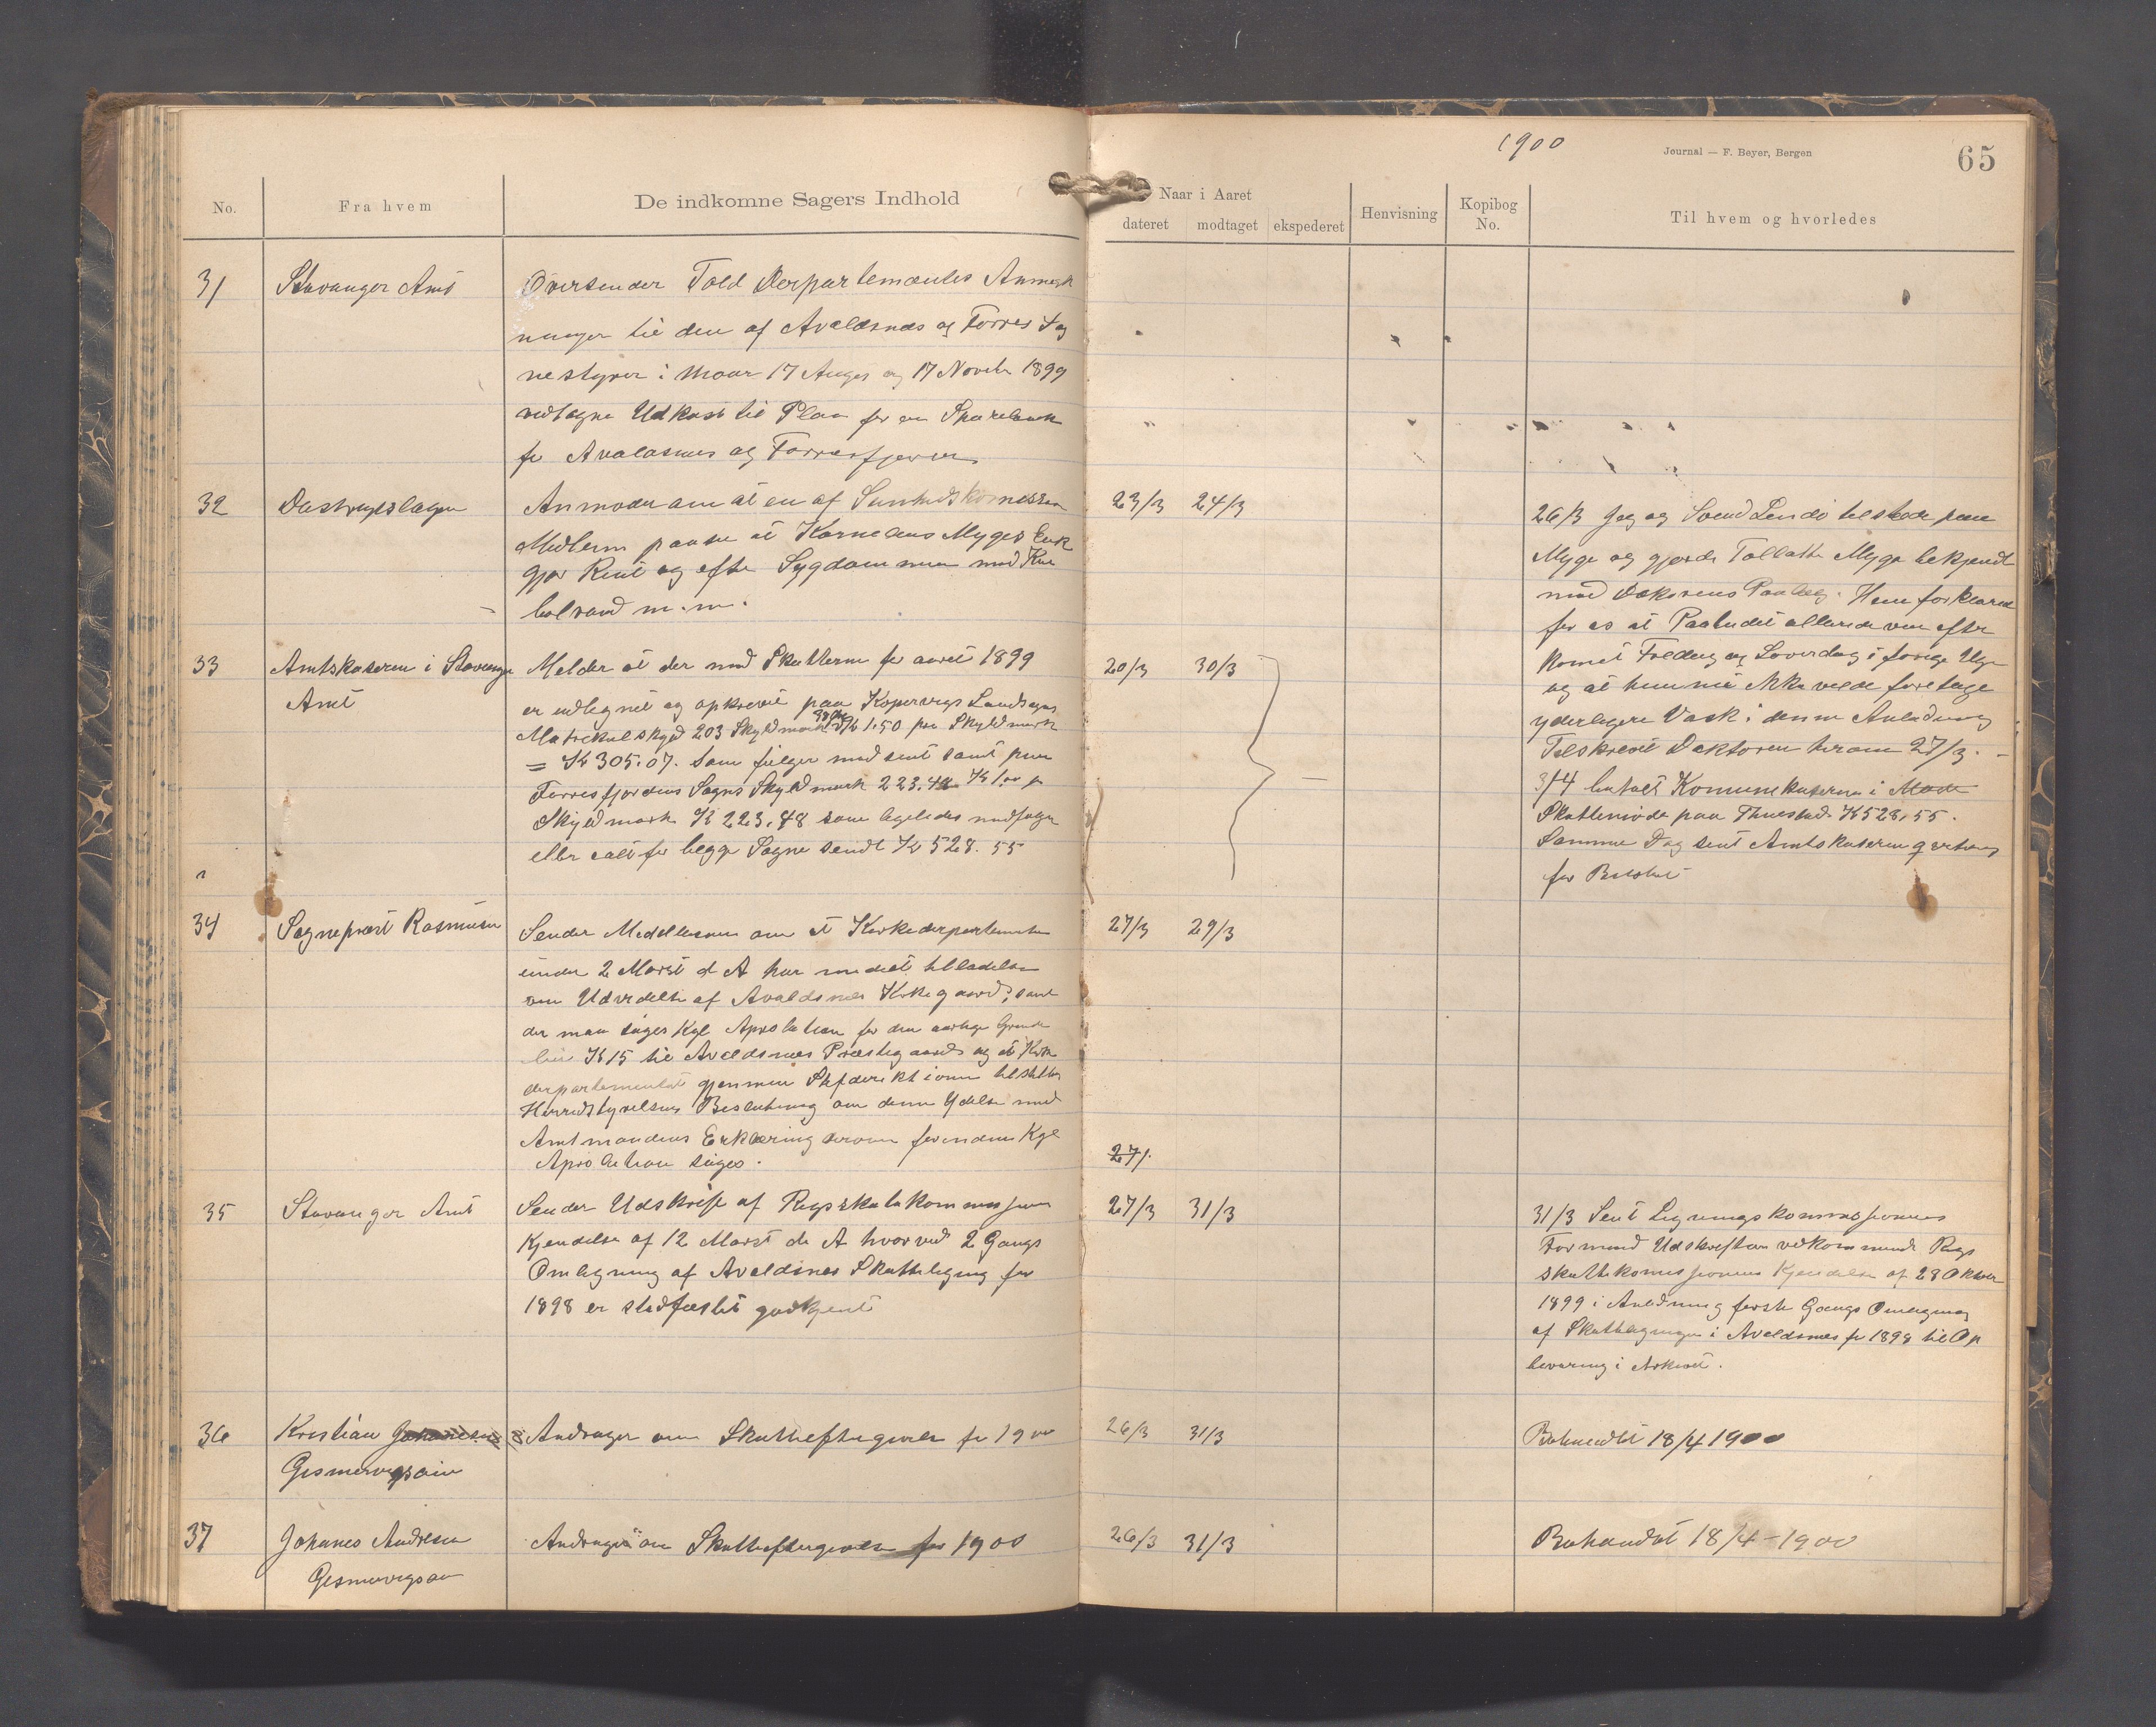 1900
Journal — F. Beyer, Bergen
65
No.
Fra hvem
De indkomne Sagers Indhold
Naar i Aaret
dateret
modtaget
ekspederet
Henvisning
Kopibog No.
Til hvem og hvorledes
31
Stavanger Amt
Oversender Told Derpartementes Anmærk
ninger til den af Avaldsnes og Torres Sog
nestyrer i 17 Auges og 17 Novebr 1899
vedtagne Udkast til Plan for en Sparebank
for Avaldsnes og Torresfjorden
32
Anmoder om at en af Sundheds
Medlem at Kornelius Myges Enk
gjør Rent og efter Sygdommen med Kar
bolvand m.m.
23/3 24/3
26/3 Jeg og tilstede paa
Myge og gjorde Tollatte Myge bekjendt
med Doktorens Paalæg. Hun forklared
for os at Paabudet allerede var efter
komet Fredag og Løverdag i forige Uge
og at hun nu ikke vilde foretage
yderligere Vask i denne Anledning
Tilskrevet Doktoren herom 27/3.
33
Amtskaseren i Stavanger
Amt
Melder at der med Skatterne for aaret 1899
er udlignet og opkrevet paa Kopervigs Landsogns
Matrikulskyld 203 Skyldmark 1.50 pr Skyldmark
= Kr 305.07. Som følger med sent samt paa
Torresfjordens Sogns Skyldmark 223.48 Kr 1.00 pr
Skyldmark Kr 223.48 som ligeledes medfølger
eller ialt for begge Sogne sendt Kr 528.55
20/3 30/3
3/4 betalt Komunekaseren i Mode
Skattemøde paa Thuestad Kr 528.55.
Samme Dag sent Amtskaseren
for Beløbet
34
Sogneprest Rasmusen
Sender Meddelelse om at Kirkederpartementen
under 2 Marst d A har meddelt tilladelse
om Udvidelse af Avaldsnes Kirkegaard, samt
der maa søges Kgl Aprobation for den aarlige Grunde
Kr 15 til Avaldsnes Prestegaard og at Kirke
derpartementet gjennem Stiftderiktionen tilstilles
Herredstyrelsens Beslutning om denne Ydelse med
Amtmandens Erklæring herom forinden Kgl
Aprobation søges.
27/3 29/3
27/.
35
Stavanger Amt
Sender Udskrift af Rigsskattekommissjonens
Kjendelse af 12 Marst d A hvorved 2 Gangs
Omligning af Avaldsnes Skatteligning for
1898 er stadfæstet godkjent
27/3 31/3
31/3 Sent Ligningskommissjonens
Formand Udskriften vedkommende Rigs
skattekomissjonens Kjendelse af 28 Oktober
1899 i Anledning første Gangs Omligning
af Skatteligningen i Avaldsnes for 1898 til Op
bevaring i Arkivet.
36
Kristian Johanesen
Gismervigsøin
Andrager om Skatteeftergivelse for 1900
26/3 31/3
Behandlet 18/4 1900
37
Johanes Andresen
Gismervigsøen
Andrager om Skatteeftergivelse for 1900
26/3 31/3
Behandlet 18/4 - 1900